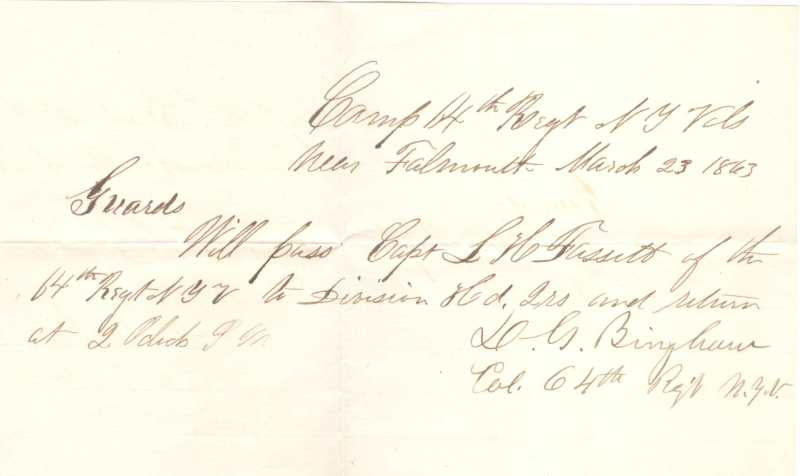 Camp 64th Regt N Y Vols
Near Falmouth March 23 1863
Guards
Will pass Capt L H Fassett of the
64th Regt N Y V to Division Hd. Qrs and return
at 2 Oclock P M
D. G. Bingham
Col. 64th Regt N.Y.V.